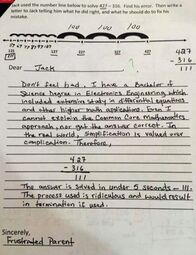 Jack used the number line below to solve 427 - 316. Find his error. Then write a
letter to Jack telling him what he did right, and what he should do to fix his
mistake.
100 100 100
127 227 327 427
427
- 316
111
Dear Jack
Don't feel bad. I have a Bachelor of
Science Degree in Electronics Engineering which
included extensive study in differential equations
and other higher math applications. Even I
cannot explain the Common Core Mathematics
approach, nor get the answer correct. In
the real world, simplification is valued over
complication. Therefore,
427
- 316
111
The answer is solved in under 5 seconds - 111.
The process used is ridiculous and would result
in termination if used.
Sincerely,
Frustrated Parent